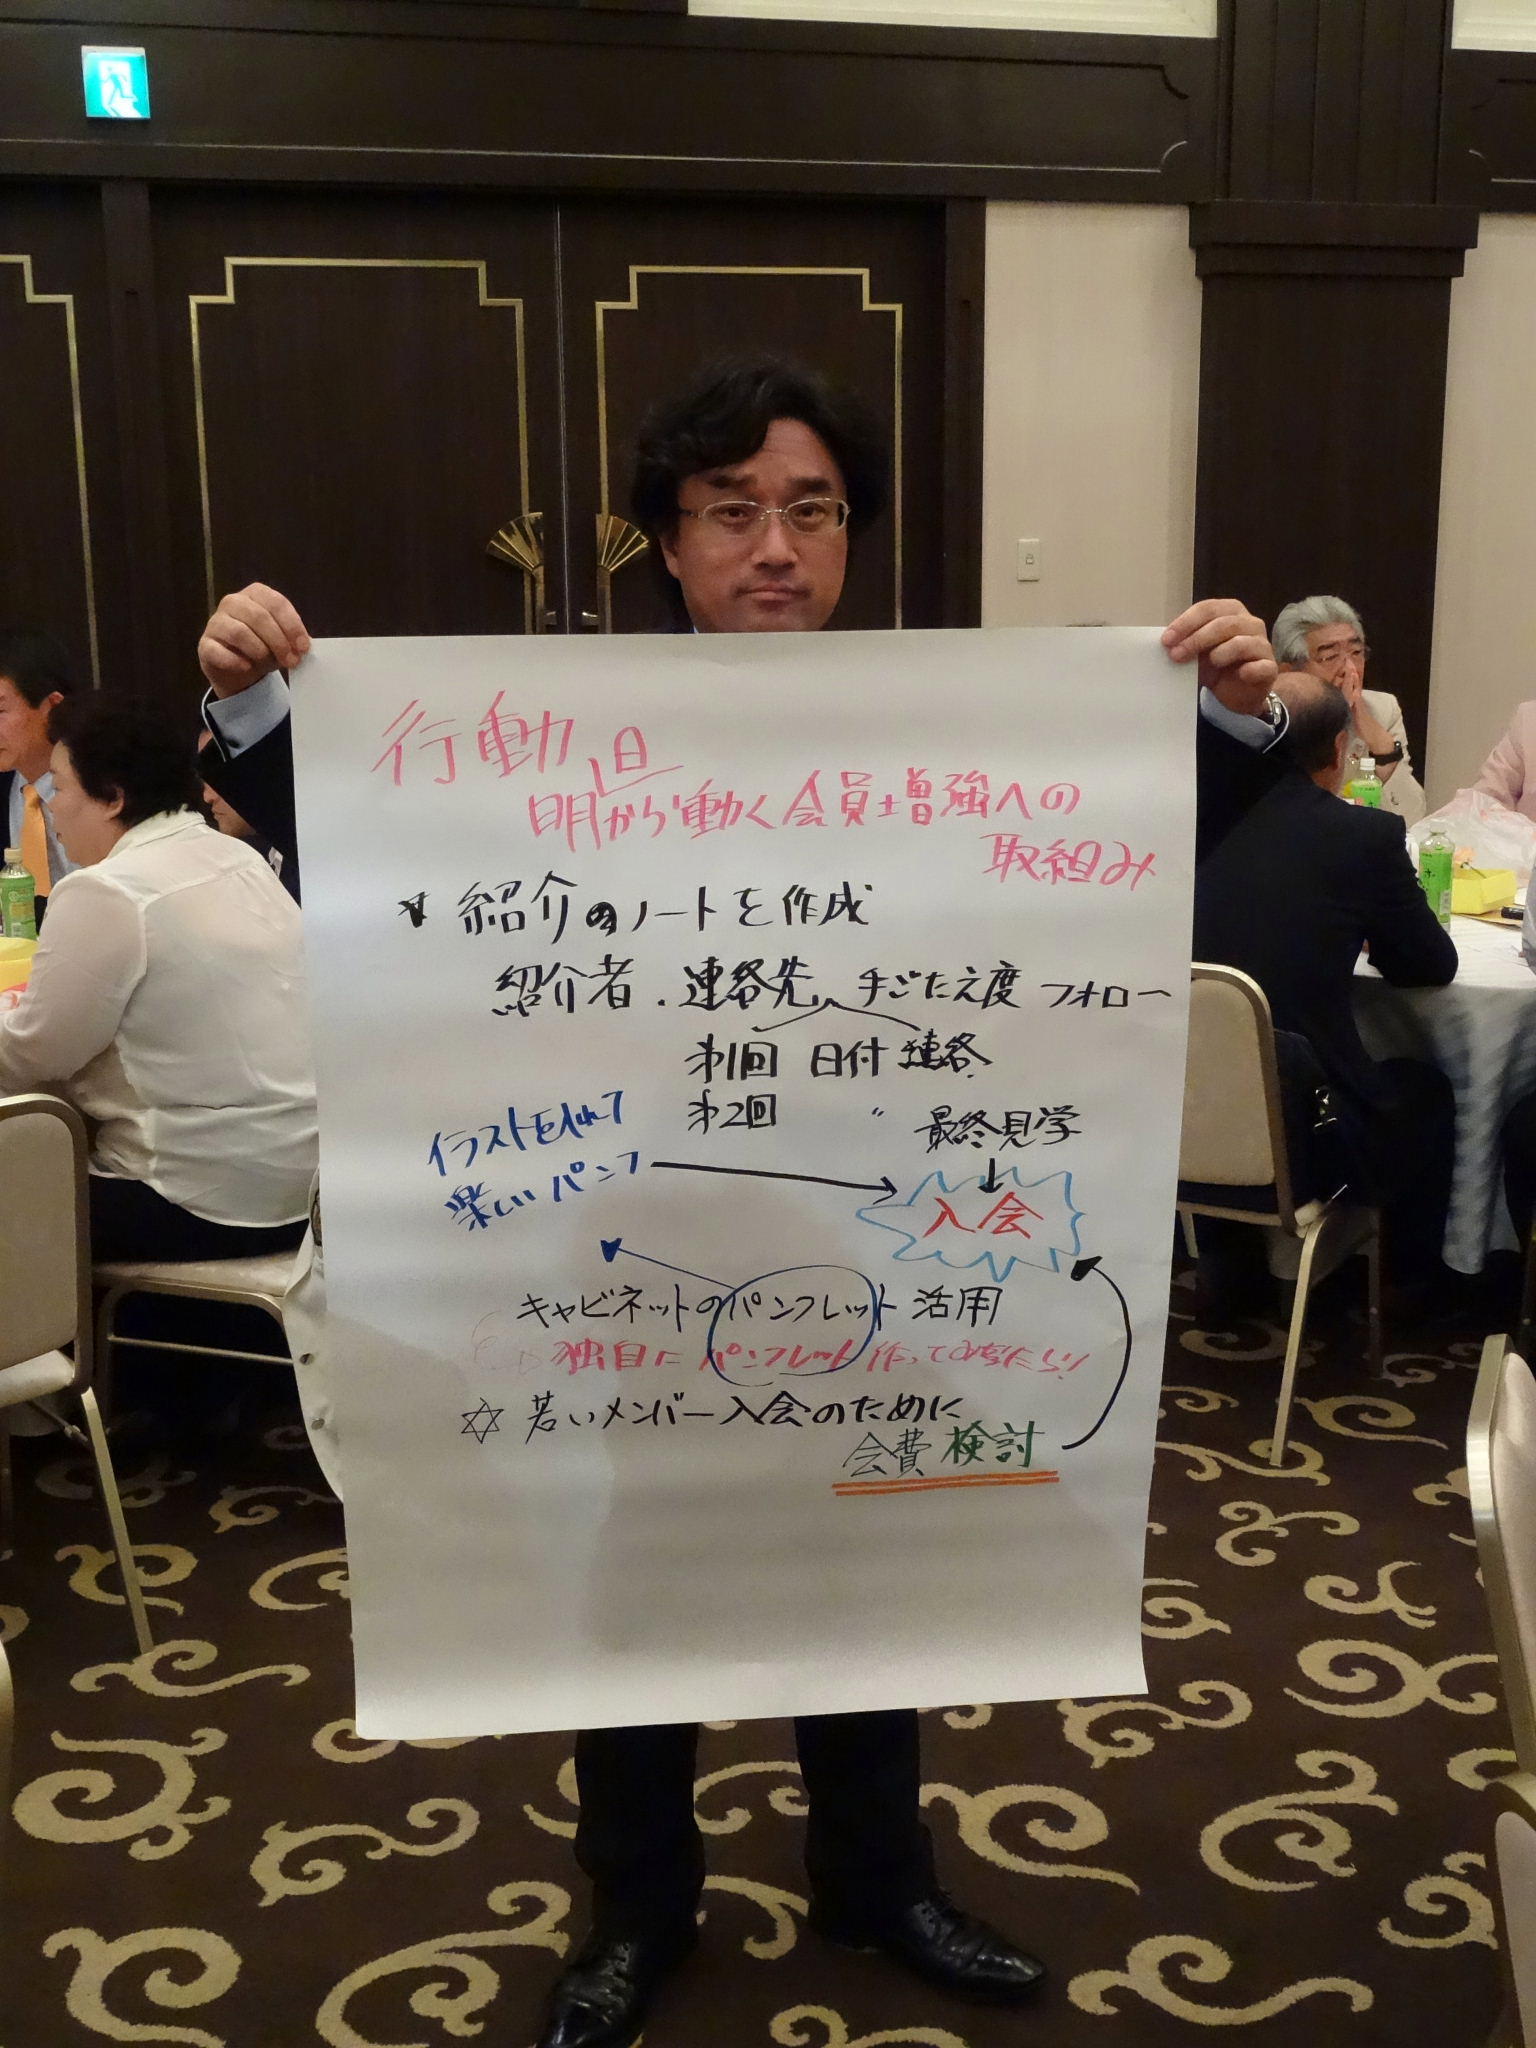 行動
明日から動く会員増強への
取組み
紹介のノートを作成
紹介者・連絡先、手ごたえ度 フォロー
第1回 日付 連絡
第2回 〃 最終見学
イラストを入れて
楽しいパンフ
入会
キャビネットのパンフレット活用
独自にパンフレット作ってみたら!
☆若いメンバー入会のために
会費検討